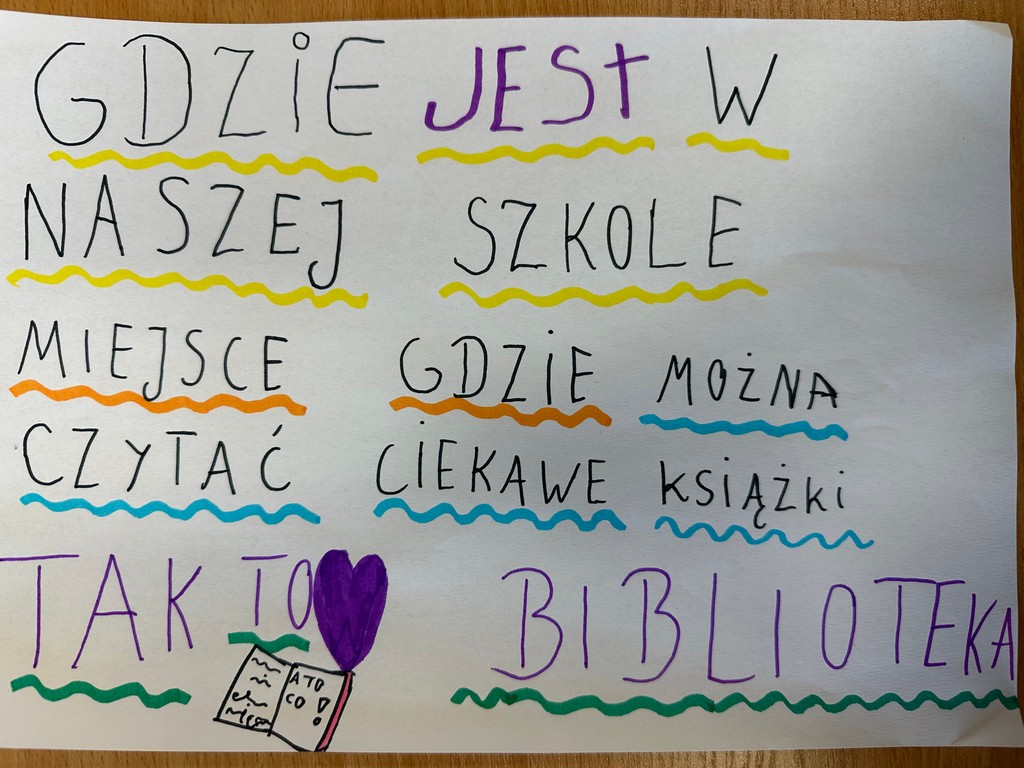 GDZIE JEST W
NASZEJ SZKOLE
MIEJSCE GDZIE MOŻNA
CZYTAĆ CIEKAWE KSIĄŻKI
TAK TO BIBLIOTEKA
A TO
CO !